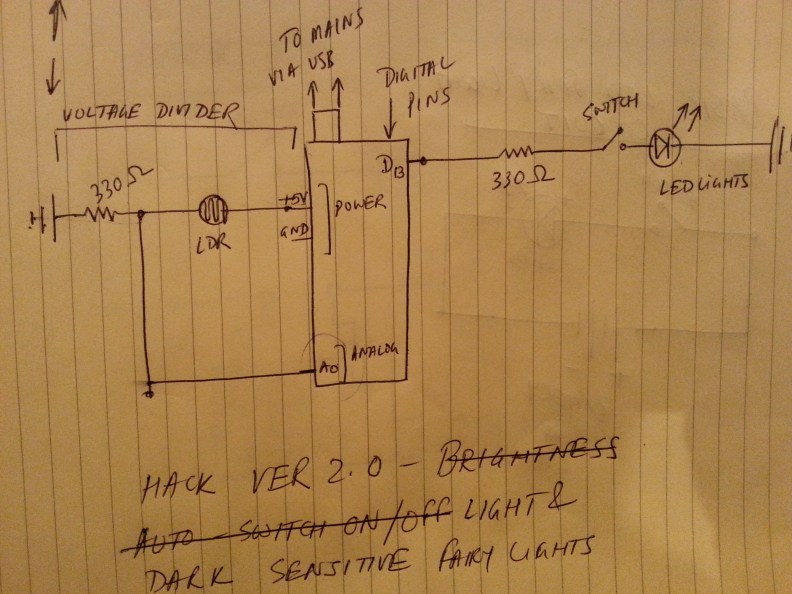 TO MAINS
VIA USB
DIGITAL
PINS
VOLTAGE DIVIDER
SWITCH
330Ω
D13
330Ω
LED LIGHTS
+5V
POWER
GND
LDR
A0
ANALOG
HACK VER 2.0 - BRIGHTNESS
AUTO - SWITCH ON/OFF LIGHT &
DARK SENSITIVE FAIRY LIGHTS